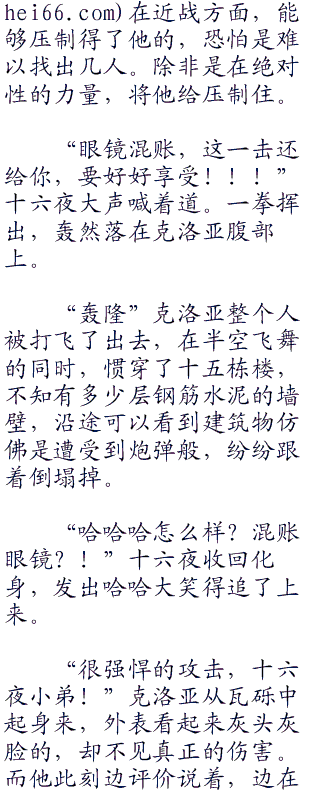 hei66.com)在近战方面，能
够压制得了他的，恐怕是难
以找出几人。除非是在绝对
性的力量，将他给压制住。
“眼镜混账，这一击还
给你，要好好享受！！！”
十六夜大声喊着道。一拳挥
出，轰然落在克洛亚腹部
上。
“轰隆”克洛亚整个人
被打飞了出去，在半空飞舞
的同时，惯穿了十五栋楼，
不知有多少层钢筋水泥的墙
壁，沿途可以看到建筑物仿
佛是遭受到炮弹般，纷纷跟
着倒塌掉。
“哈哈哈怎么样？混账
眼镜？！”十六夜收回化
身，发出哈哈大笑得追了上
来。
“很强悍的攻击，十六
夜小弟！”克洛亚从瓦砾中
起身来，外表看起来灰头灰
脸的，却不见真正的伤害。
而他此刻边评价说着，边在